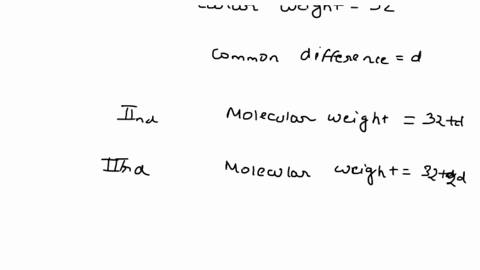 weight = 32
Common difference = d
IInd Molecular weight = 32+d
IIIrd Molecular weight = 32+2d